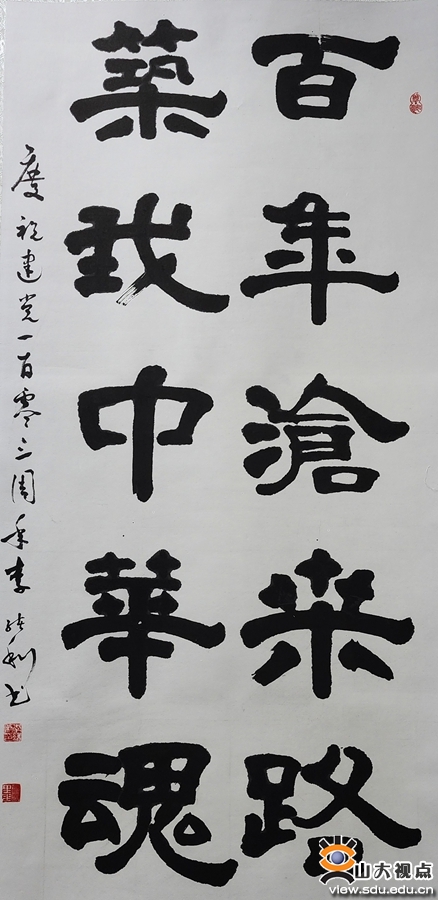 百年滄来路
築我中華魂
慶祝建党一百零三周年李
书
山大视点
view.sdu.edu.cn